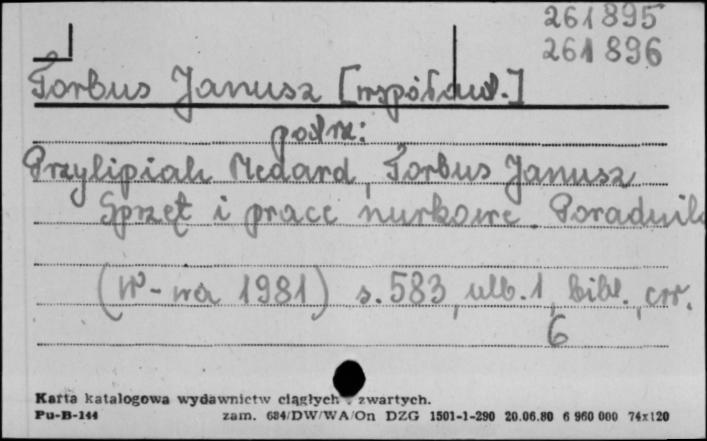 261895
261896
Torbus Janusz [współaut.]
podrz:
Przylipiak Medard, Torbus Janusz
Sprzęt i prace nurkowe. Poradnik
(W-wa 1981) s. 583, nlb. 1, bibl.,
6
Karta katalogowa wydawnictw ciągłych zwartych.
Pu-B-144 zam. 684/DW/WA/On DZG 1501-1-290 20.06.80 6 960 000 74x120